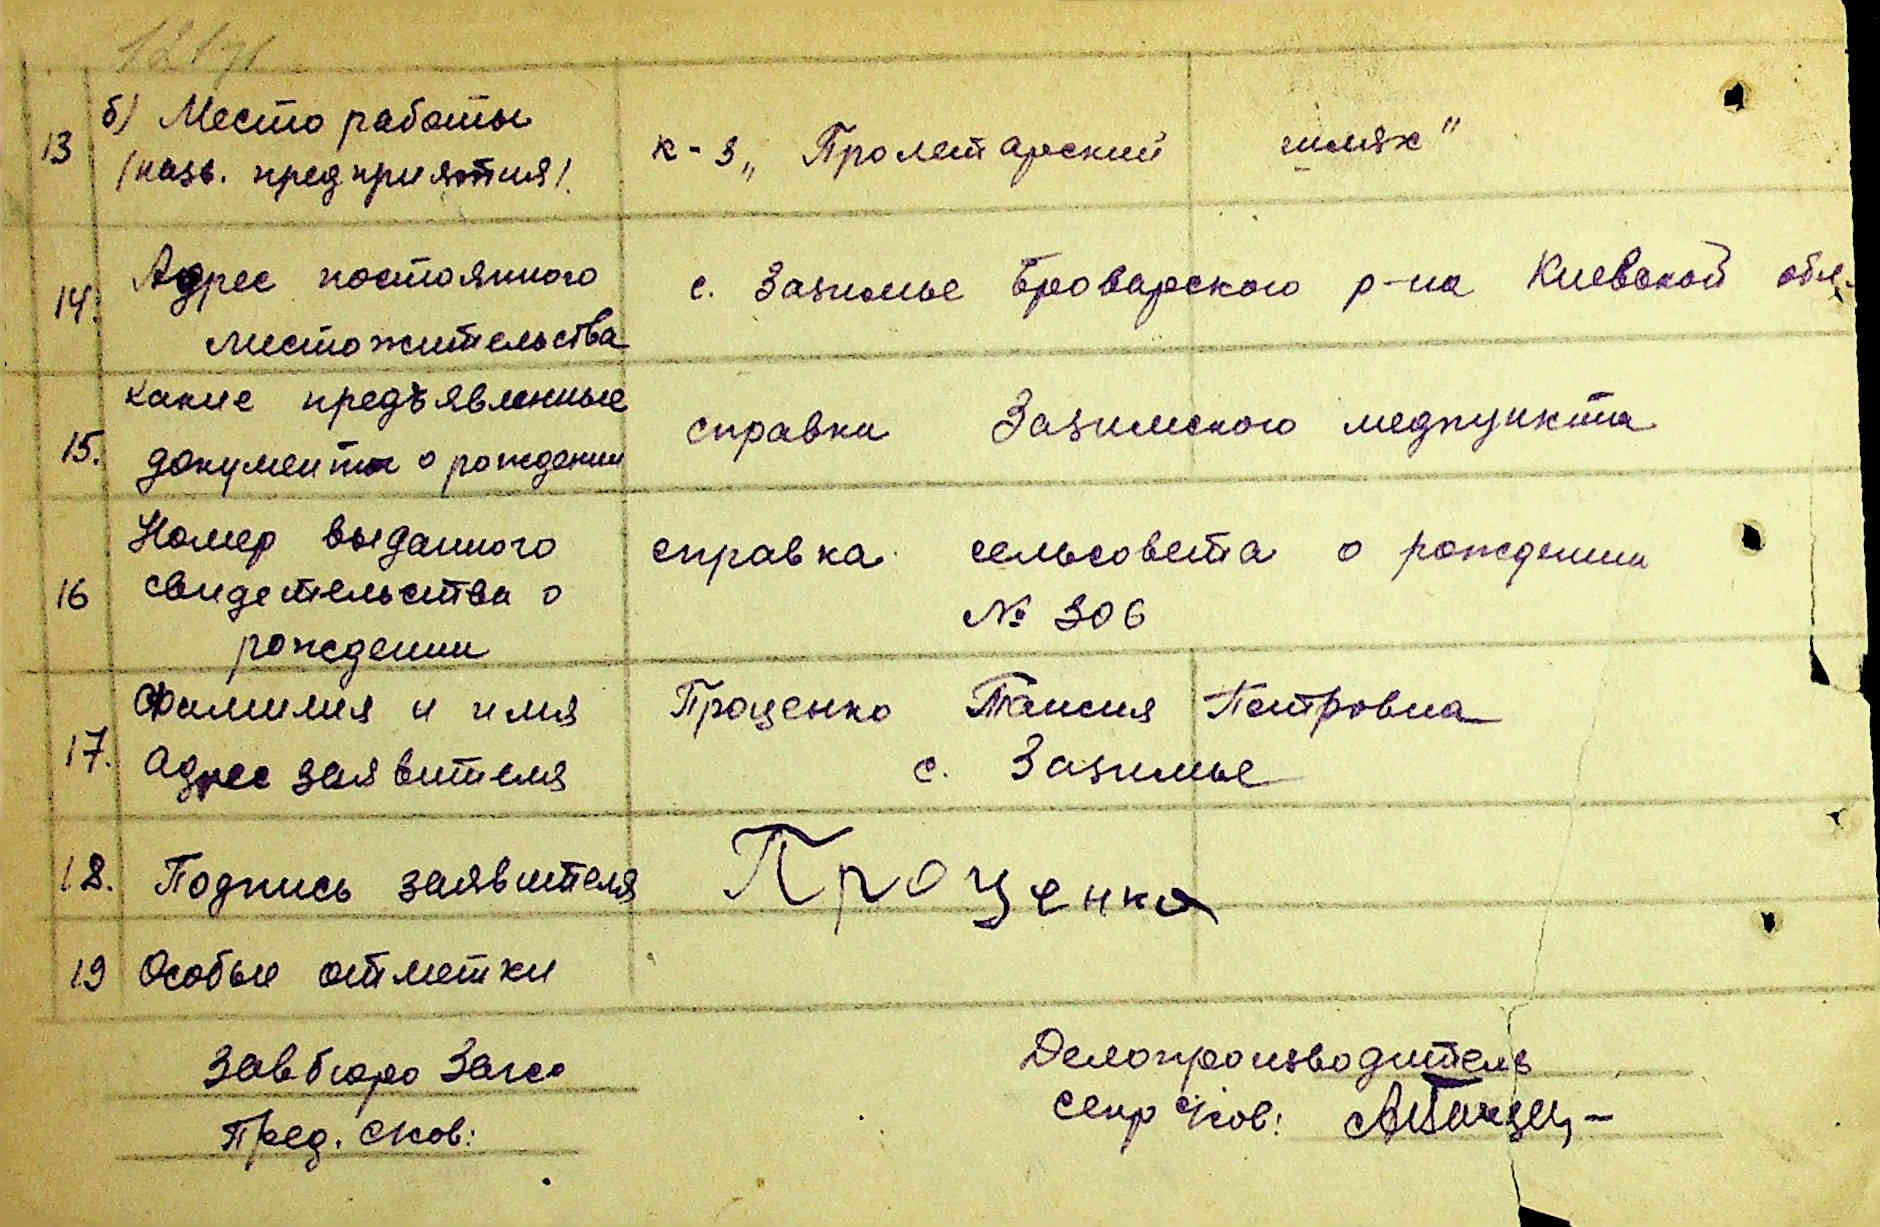 13 б) Место работы
(назв. предприятия). к-з „Пролетарский шлях"
14. Адрес постоянного с. Зазимье Броварского р-на Киевской обл.
местожительства
15. какие предъявленные справки Зазимского медпункта
документы о рождении
16 Номер выданного справка сельсовета о рождении
свидетельства о № 306
рождении
17. Фамилия и имя Проценко Таисия Петровна
адрес заявителя с. Зазимье
18. Подпись заявителя Проценко
19 Особые отметки
Завбюро Загса Делопроизводитель
Пред. с/сов: секр с/сов: